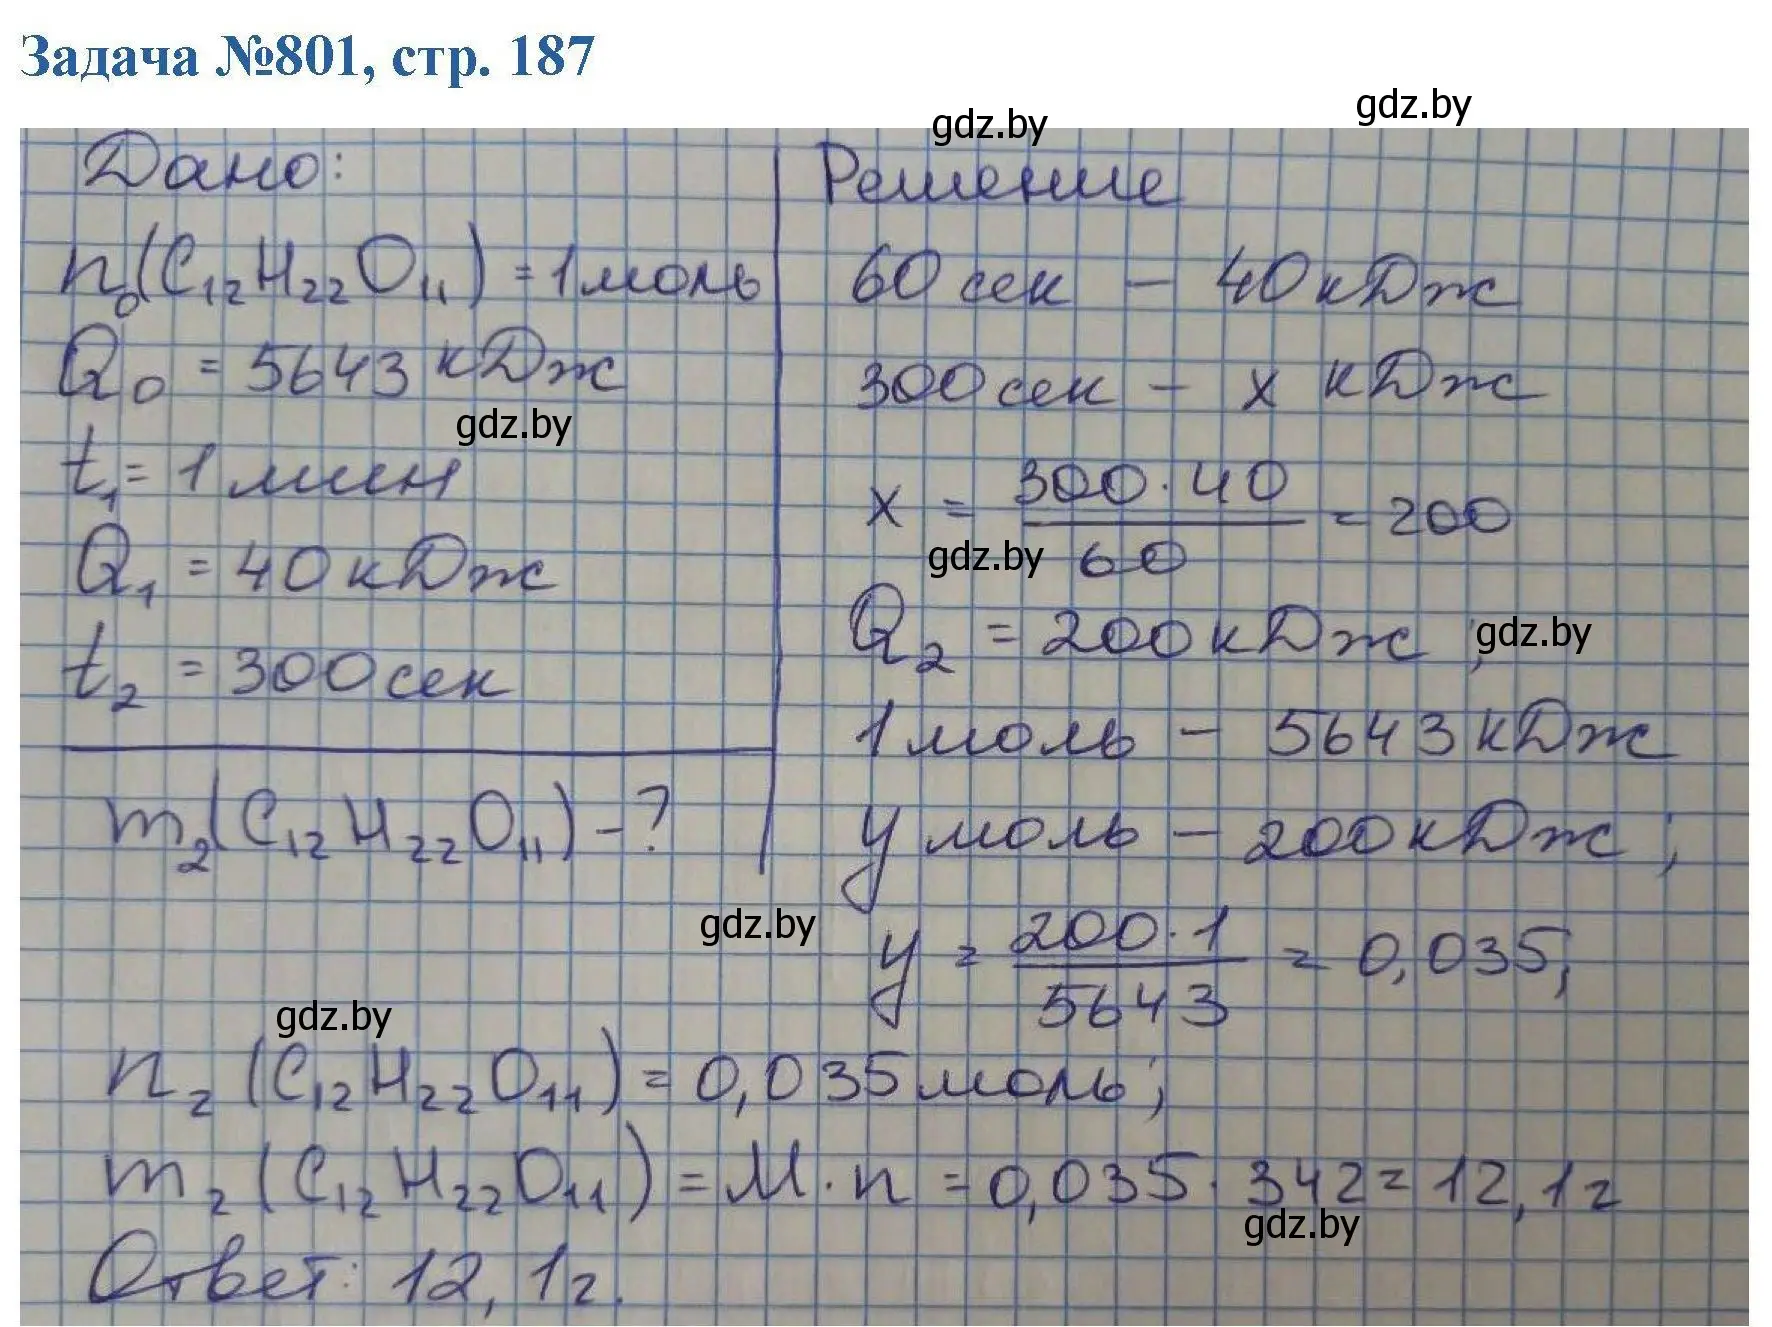 Задача №801, стр. 187
gdz.by
gdz.by
Дано:
n₀(C₁₂H₂₂O₁₁) = 1 моль
Q₀ = 5643 кДж
gdz.by
t₁ = 1 мин
Q₁ = 40 кДж
t₂ = 300 сек
m₂(C₁₂H₂₂O₁₁) - ?
Решение
60 сек - 40 кДж
300 сек - x кДж
x = 300 · 40 / 60 = 200
gdz.by
Q₂ = 200 кДж ;
gdz.by
1 моль - 5643 кДж
y моль - 200 кДж ;
gdz.by
y = 200 · 1 / 5643 = 0,035;
gdz.by
n₂ (C₁₂H₂₂O₁₁) = 0,035 моль;
m₂ (C₁₂H₂₂O₁₁) = M · n = 0,035 · 342 = 12,1 г
gdz.by
Ответ: 12,1 г.